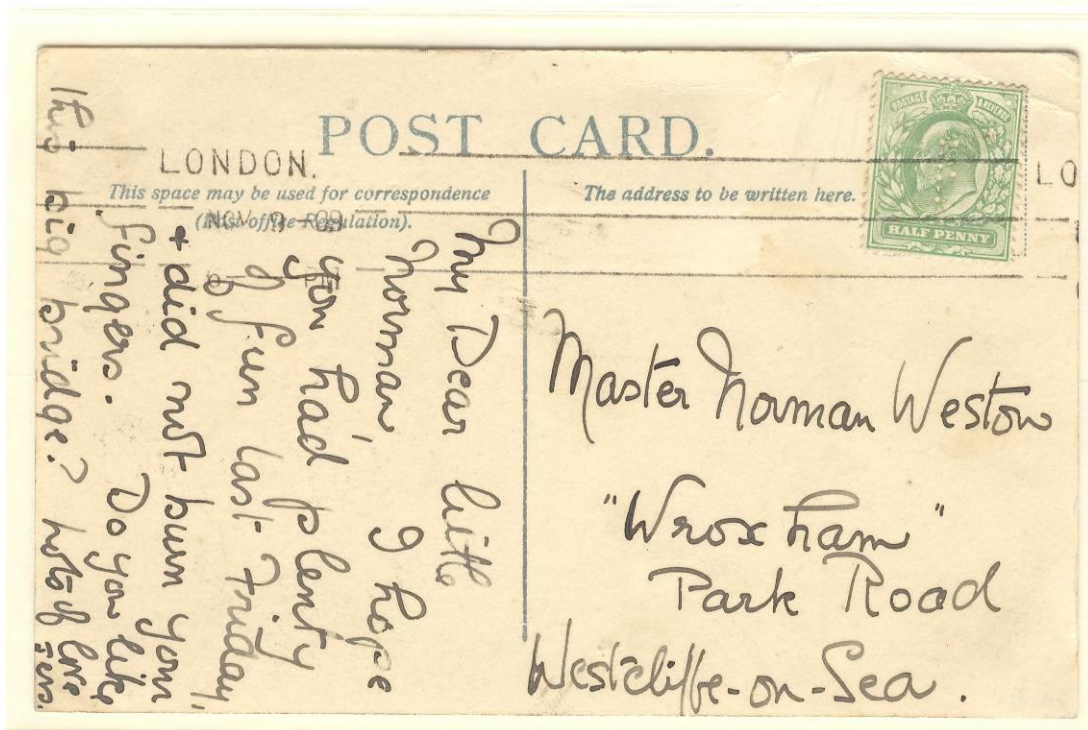 POST CARD.
LONDON.
This space may be used for correspondence
(Post office Regulation).
NOV 9 09
The address to be written here.
POSTAGE & REVENUE
HALF PENNY
LO
My Dear little
Norman, I hope
you had plenty
of fun last Friday,
+ did not burn your
fingers. Do you like
this big bridge? Lots of love
Master Norman Weston
"Wroxham"
Park Road
Westcliffe-on-Sea.